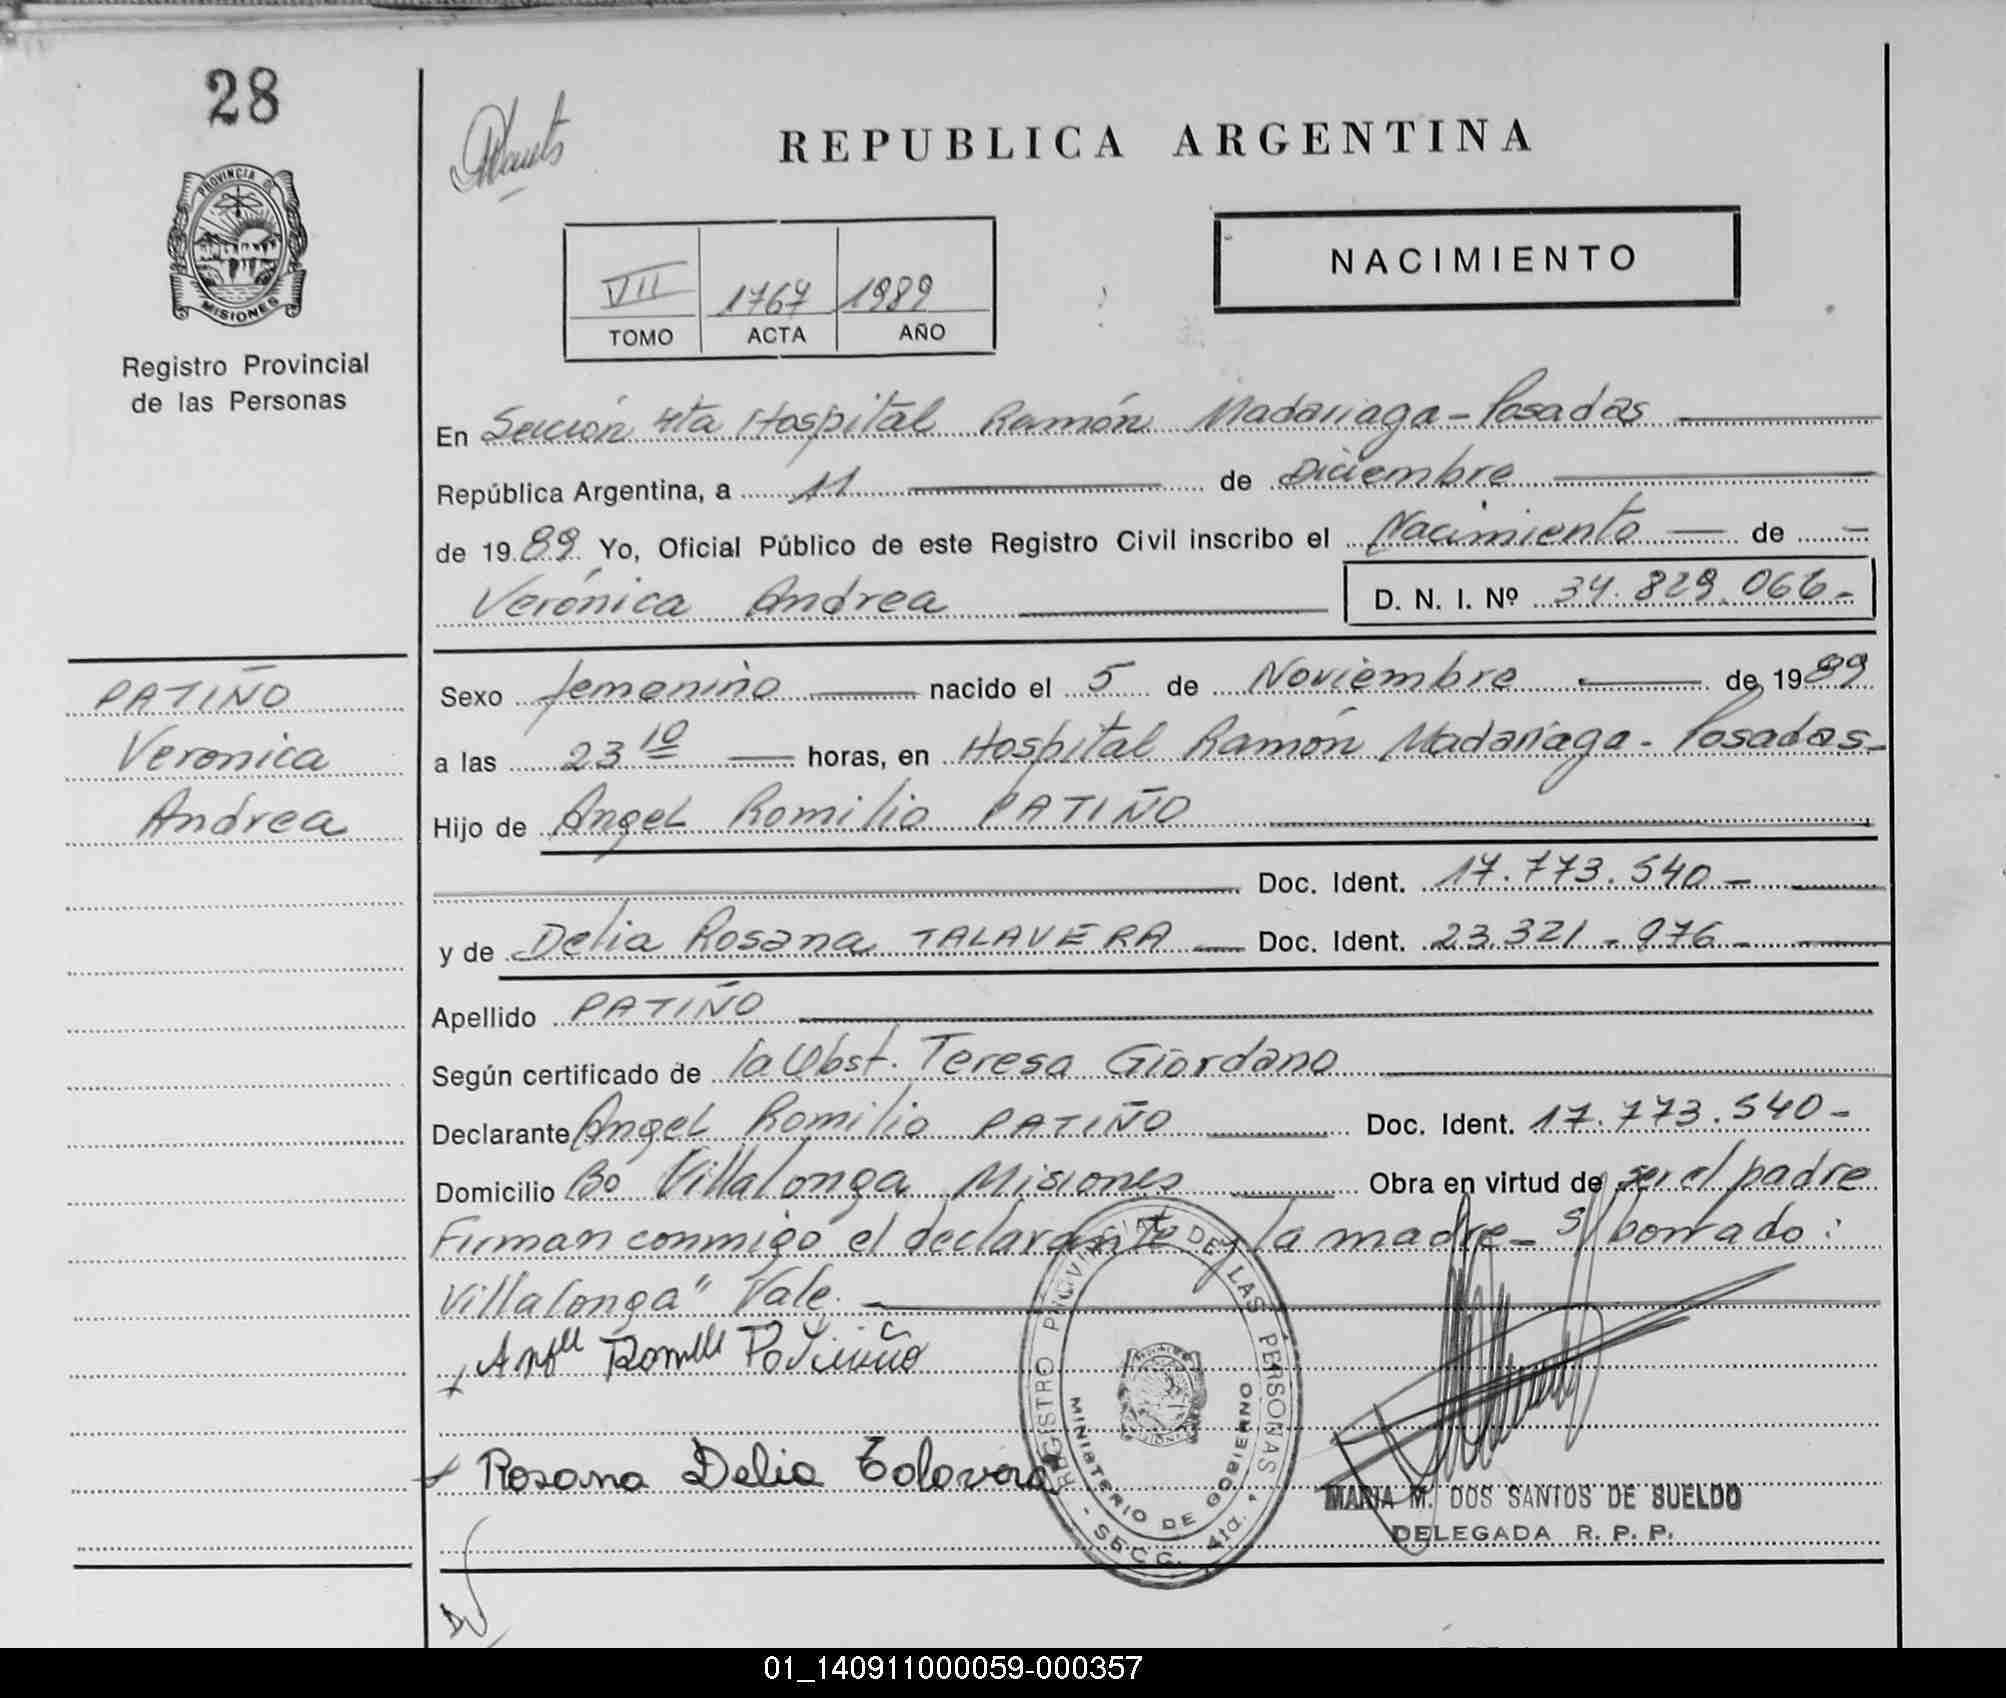 28
PROVINCIA DE
MISIONES
Registro Provincial
de las Personas
REPUBLICA ARGENTINA
NACIMIENTO
VII 1767 1989
TOMO ACTA AÑO
En Sección 4ta Hospital Ramón Madariaga - Posadas
República Argentina, a 11 de Diciembre
de 1989 Yo, Oficial Público de este Registro Civil inscribo el Nacimiento de
Verónica Andrea D. N. I. Nº 34.829.066-
PATIÑO
Veronica
Andrea
Sexo femenino nacido el 5 de Noviembre de 1989
a las 23 10 horas, en Hospital Ramón Madariaga - Posadas-
Hijo de Angel Romilio PATIÑO
Doc. Ident. 17.773.540-
y de Delia Rosana TALAVERA Doc. Ident. 23.321.976-
Apellido PATIÑO
Según certificado de la Obst. Teresa Giordano
Declarante Angel Romilio PATIÑO Doc. Ident. 17.773.540-
Domicilio Bo Villalonga Misiones Obra en virtud de ser el padre
Firman conmigo el declarante y la madre- s/borrado:
Villalonga" Vale.
Rosana Delia Talavera
REGISTRO PROVINCIAL DE LAS PERSONAS
MINISTERIO DE GOBIERNO
- SECC. 4ta. -
MARIA M. DOS SANTOS DE SUELDO
DELEGADA R. P. P.
01_140911000059-000357